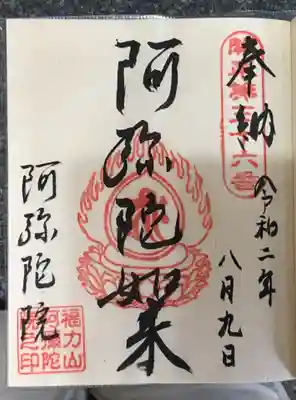 奉納
令和二年
八月九日
阿弥陀如来
阿弥陀院
福力山
阿弥陀
院之印